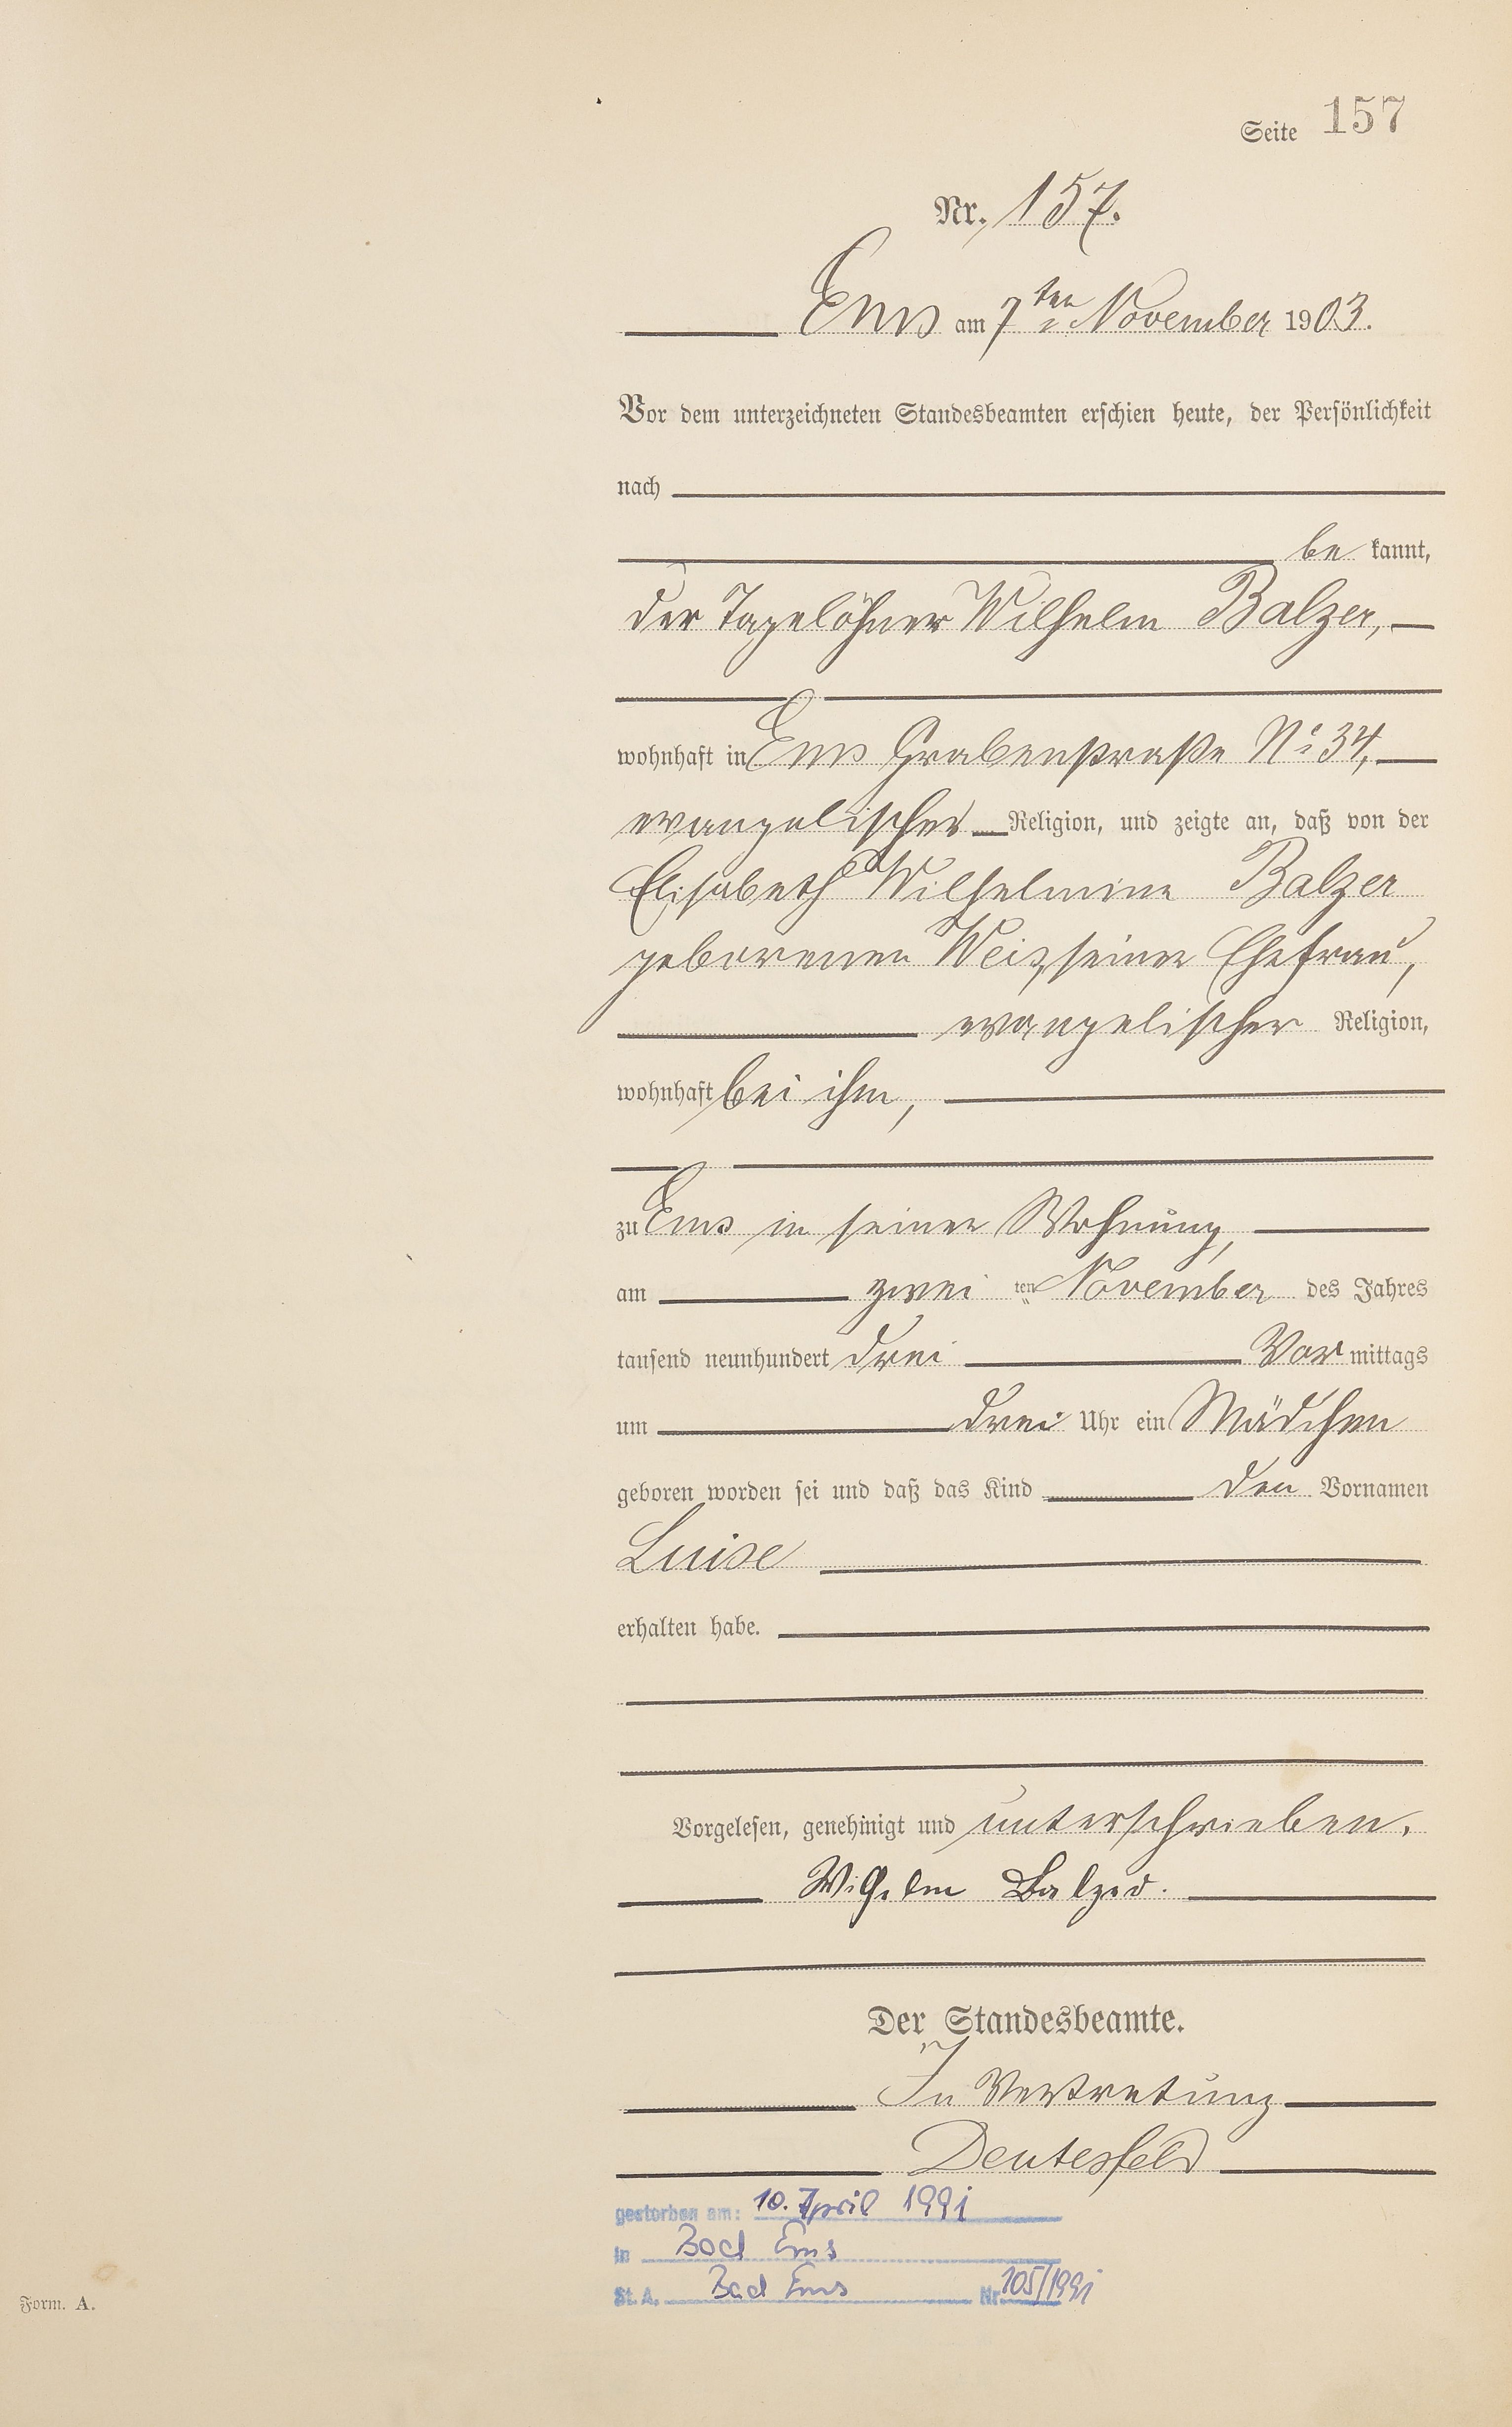 Seite 157
Nr. 157.
Ems am 7ten November 1903.
Vor dem unterzeichneten Standesbeamten erschien heute, der Persönlichkeit
nach
be kannt,
der Tagelöhner Wilhelm Balzer,
wohnhaft in Ems Grabenstraße No 34,
evangelischer Religion, und zeigte an, daß von der
Elisabeth Wilhelmine Balzer
geborenen Weis, seiner Ehefrau,
evangelischer Religion,
wohnhaft bei ihm,
zu Ems in seiner Wohnung,
am zwei ten November des Jahres
tausend neunhundert drei Vor mittags
um drei Uhr ein Mädchen
geboren worden sei und daß das Kind den Vornamen
Luise
erhalten habe.
Vorgelesen, genehmigt und unterschrieben.
Wilhelm Balzer.
Der Standesbeamte.
In Vertretung
Deutesfeld
gestorben am: 10. April 1991
in Bad Ems
St. A. Bad Ems Nr. 105/1991
Form. A.